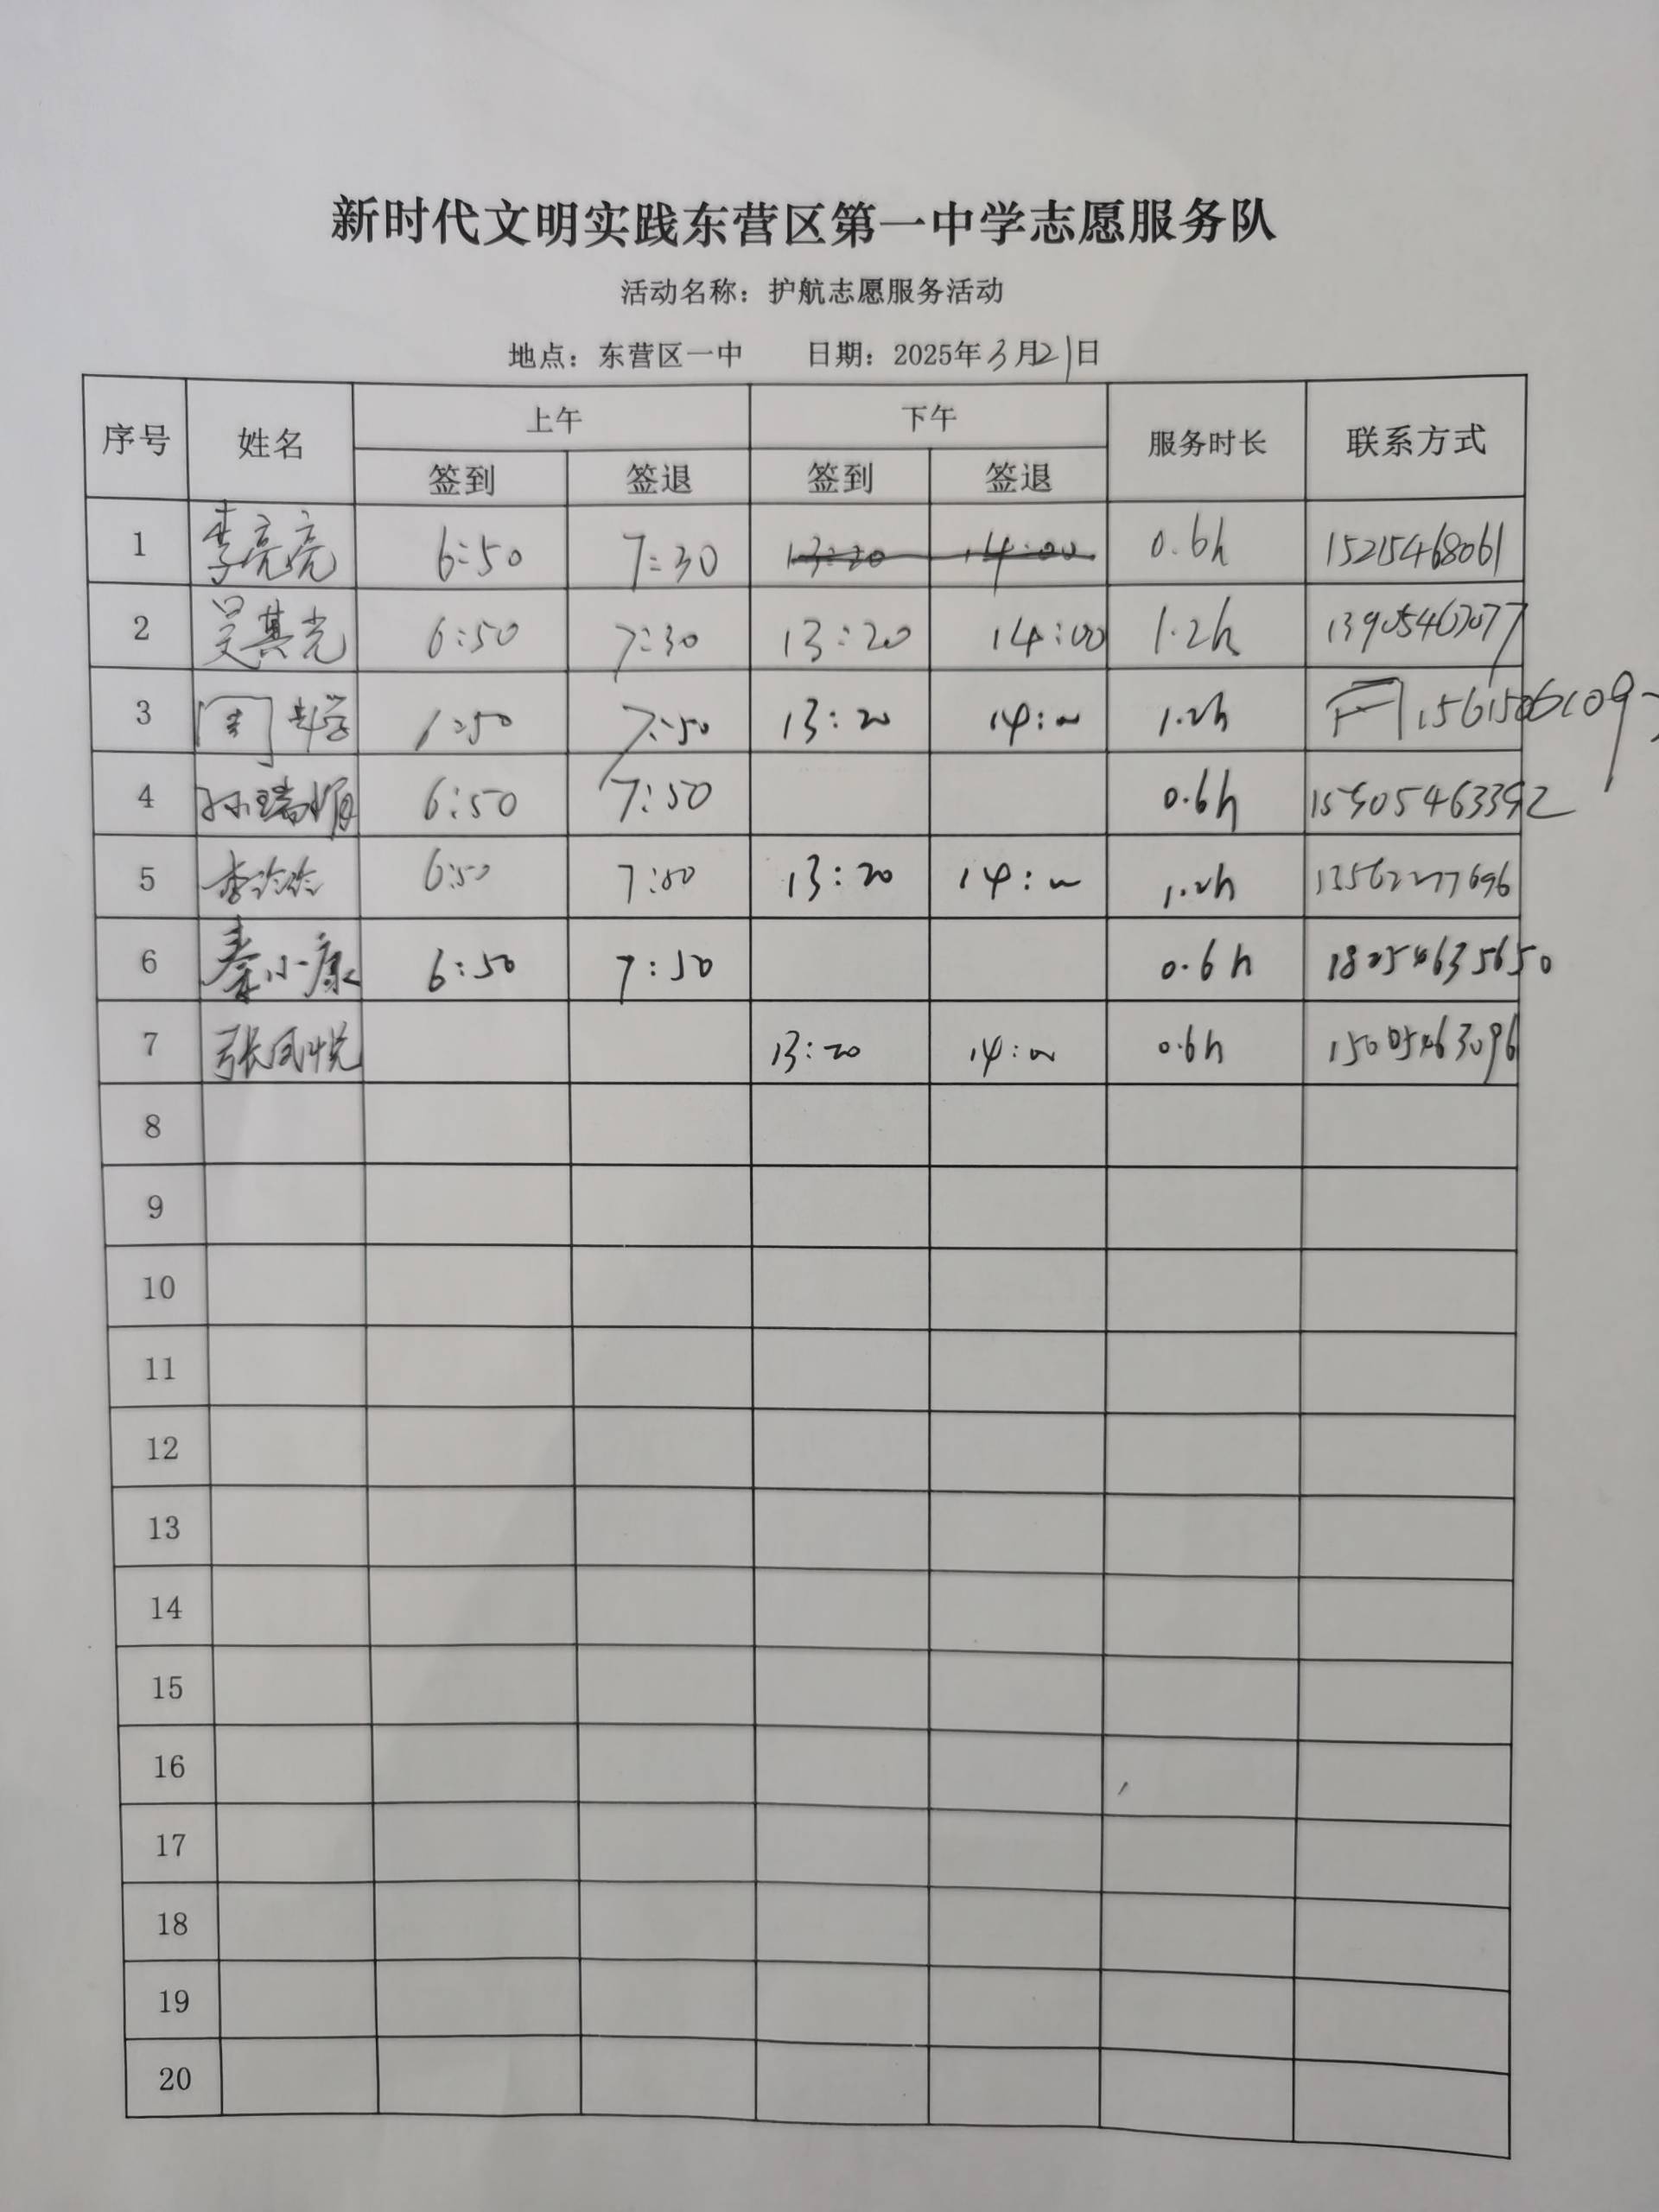 新时代文明实践东营区第一中学志愿服务队
活动名称：护航志愿服务活动
地点：东营区一中 日期：2025年3月21日
序号 姓名 上午 下午 服务时长 联系方式
签到 签退 签到 签退
1 李亮亮 6:50 7:30 13:20 14:00 0.6h 15215468061
2 吴其光 6:50 7:30 13:20 14:00 1.2h 13905467077
3 周 6:50 7:50 13:20 14:00 1.2h
4 孙瑞娟 6:50 7:50 0.6h 15905463392
5 李玲玲 6:50 7:50 13:20 14:00 1.2h 13562277696
6 秦小康 6:50 7:50 0.6h 18254635650
7 张凤悦 13:20 14:00 0.6h 15005463096
8
9
10
11
12
13
14
15
16
17
18
19
20